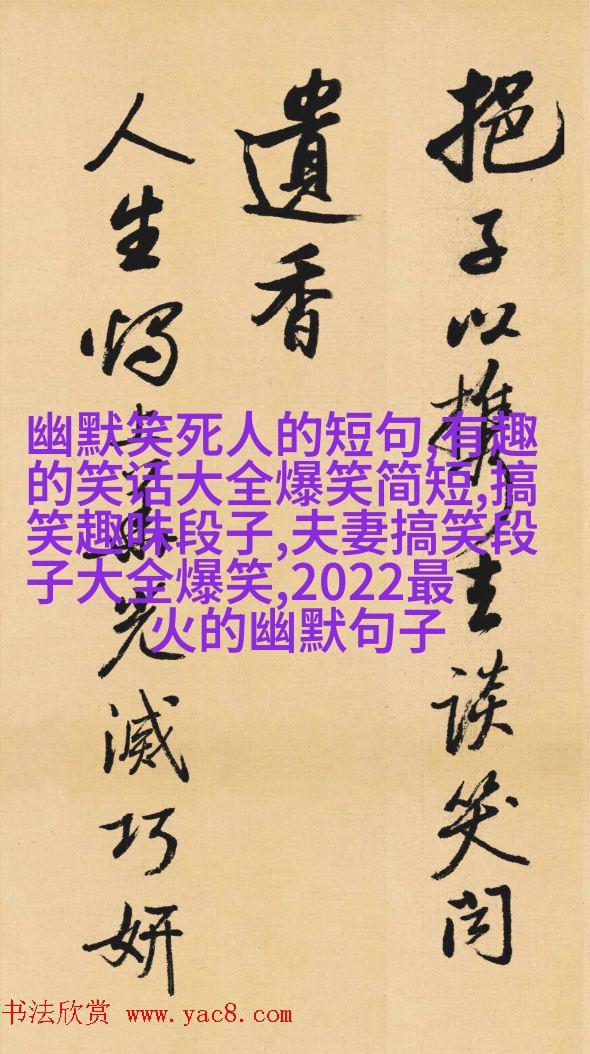 挹子以携談笑
遺香
人生光滅巧妍
幽默笑死人的短句,有趣
的笑话大全爆笑简短,搞
笑趣味段子,夫妻搞笑段
子大全爆笑,2022最
火的幽默句子
书法欣赏 www.yac8.com